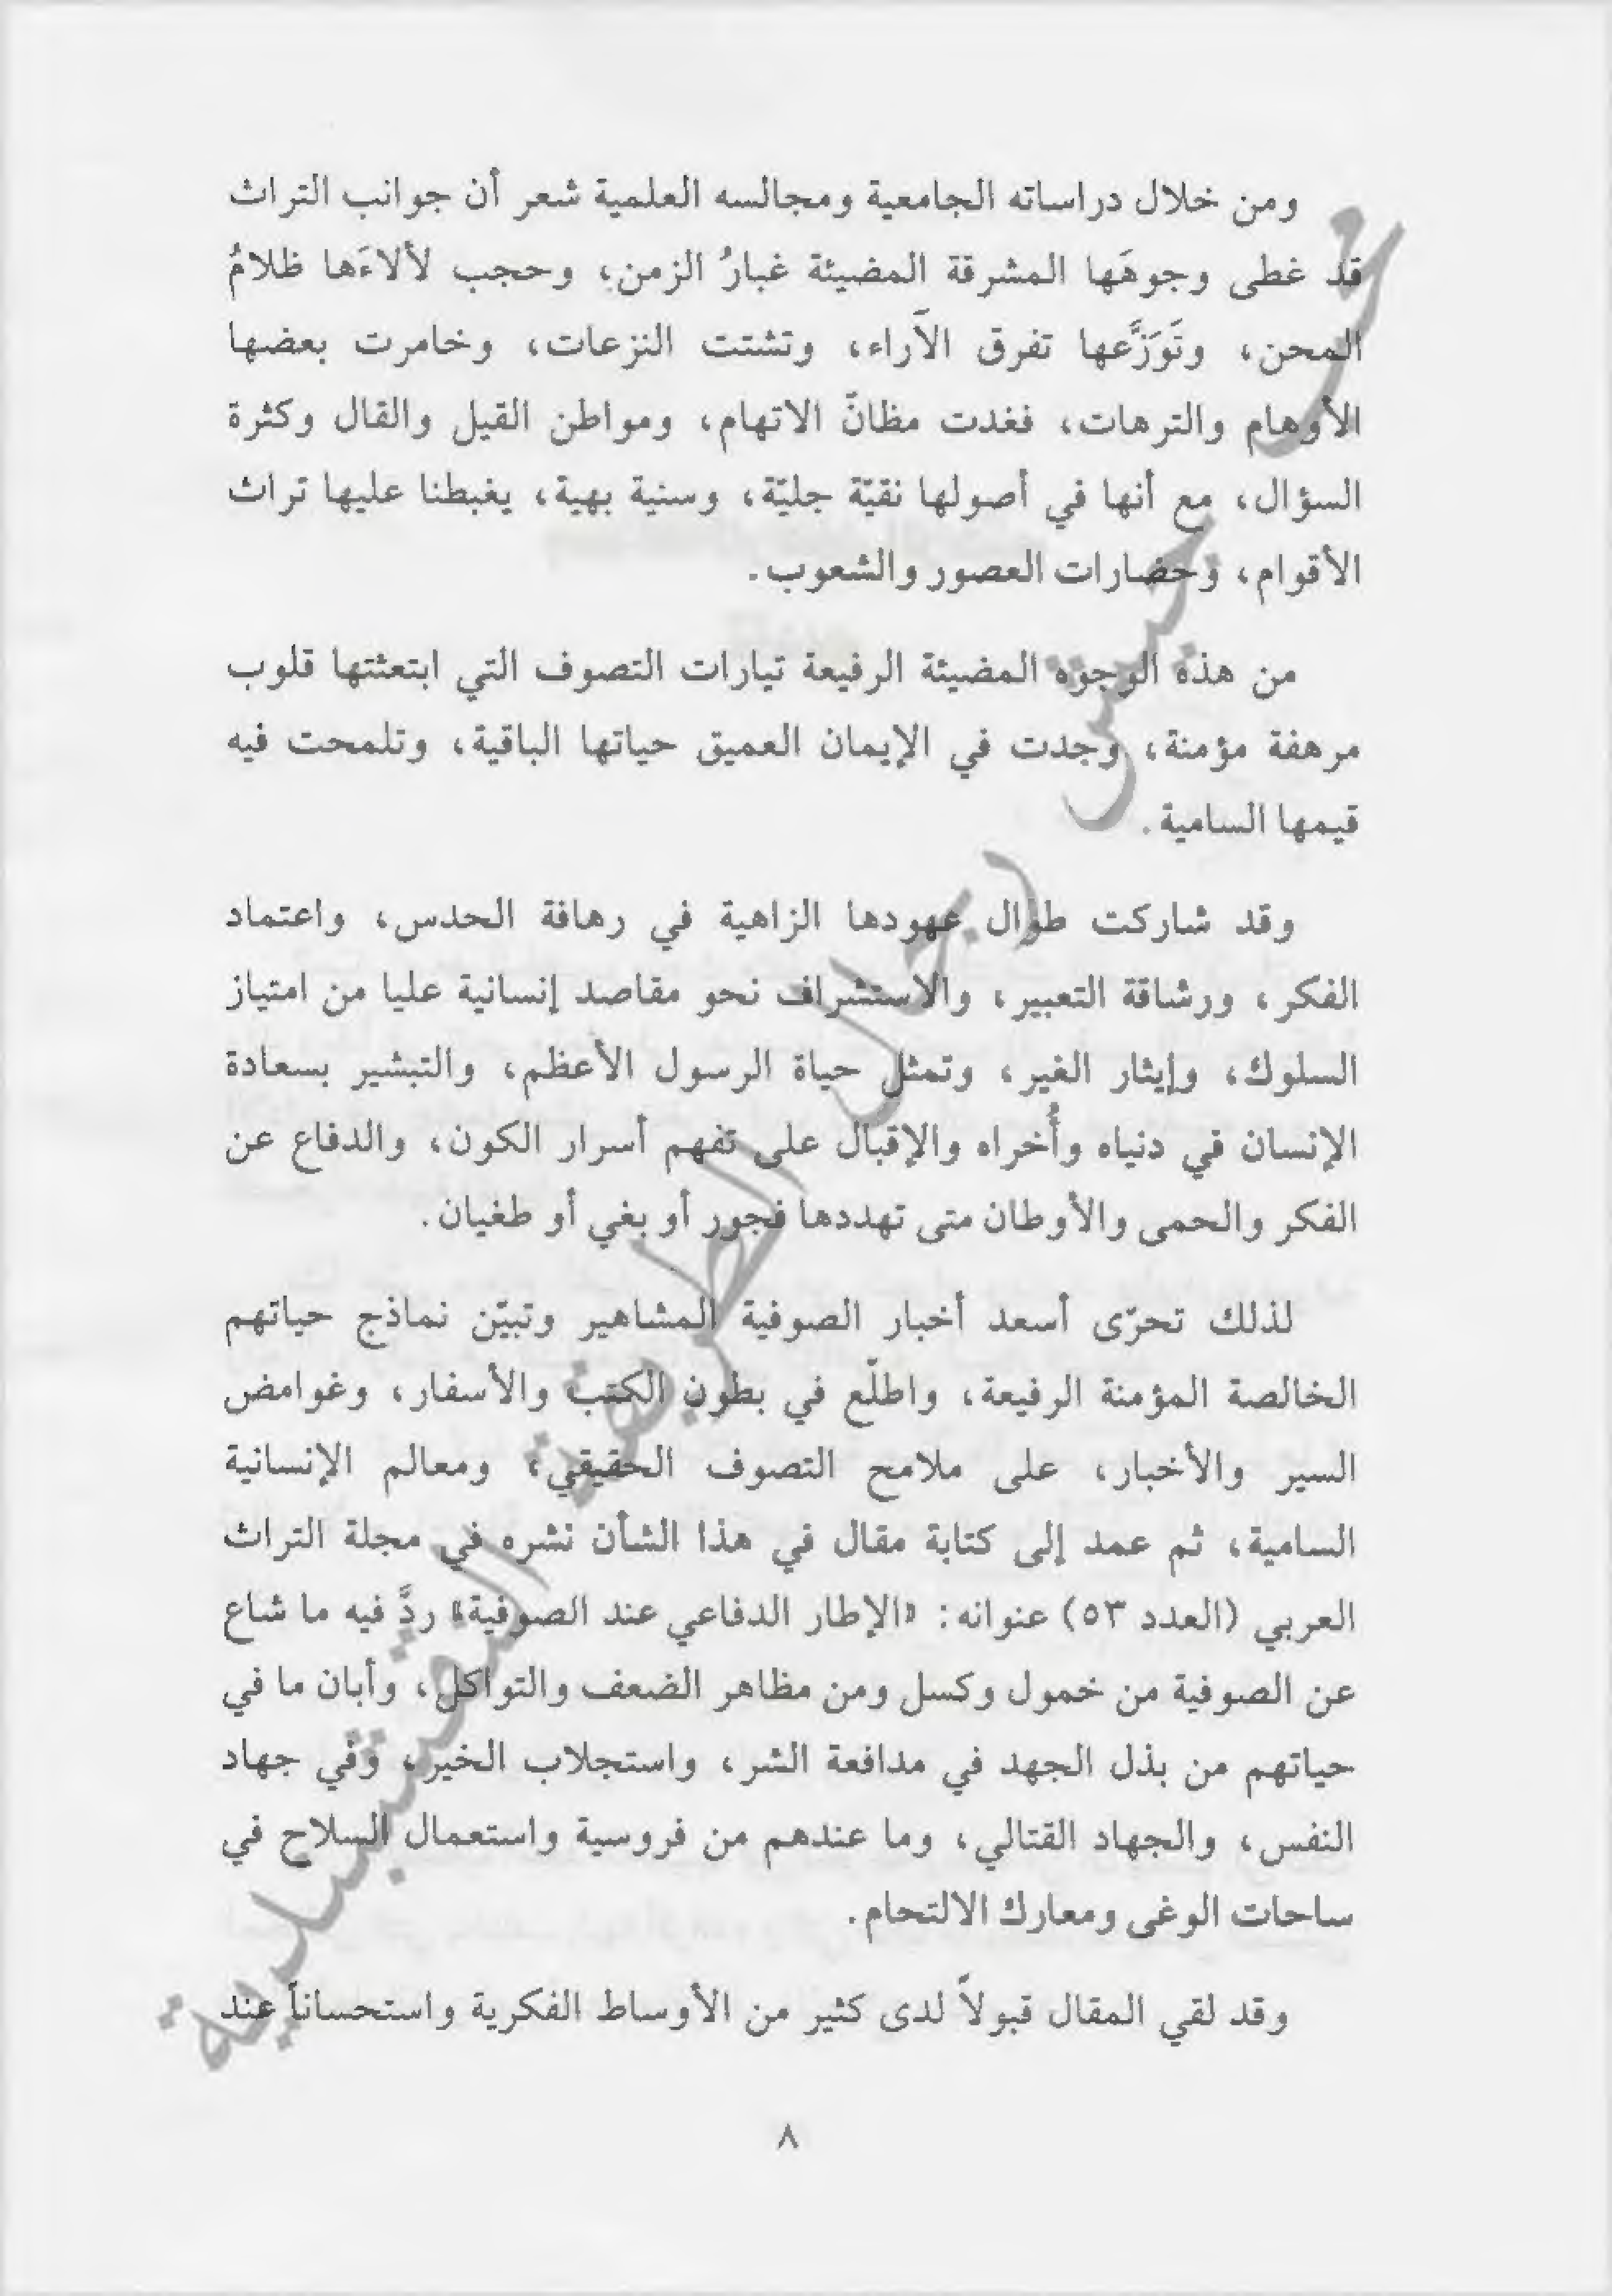 ومن خلال دراساته الجامعية ومجالسه العلمية شعر أن جوانب التراث
قد غطى وجوهَها المشرقة المضيئة غبارُ الزمن، وحجب لألاءَها ظلامُ
المحن، وتَوَزَّعها تفرق الآراء، وتشتت النزعات، وخامرت بعضها
الأوهام والترهات، فغدت مظانّ الاتهام، ومواطن القيل والقال وكثرة
السؤال، مع أنها في أصولها نقيّة جليّة، وسنية بهية، يغبطنا عليها تراث
الأقوام، وحضارات العصور والشعوب.
من هذه الوجوه المضيئة الرفيعة تيارات التصوف التي ابتعثتها قلوب
مرهفة مؤمنة، وجدت في الإيمان العميق حياتها الباقية، وتلمحت فيه
قيمها السامية.
وقد شاركت طوال عهودها الزاهية في رهافة الحدس، واعتماد
الفكر، ورشاقة التعبير، والاستشراف نحو مقاصد إنسانية عليا من امتياز
السلوك، وإيثار الغير، وتمثل حياة الرسول الأعظم، والتبشير بسعادة
الإنسان في دنياه وأُخراه والإقبال على تفهم أسرار الكون، والدفاع عن
الفكر والحمى والأوطان متى تهددها فجور أو بغي أو طغيان.
لذلك تحرّى أسعد أخبار الصوفية المشاهير وتبيّن نماذج حياتهم
الخالصة المؤمنة الرفيعة، واطلّع في بطون الكتب والأسفار، وغوامض
السير والأخبار، على ملامح التصوف الحقيقي، ومعالم الإنسانية
السامية، ثم عمد إلى كتابة مقال في هذا الشأن نشره في مجلة التراث
العربي (العدد ٥٣) عنوانه: «الإطار الدفاعي عند الصوفية» ردَّ فيه ما شاع
عن الصوفية من خمول وكسل ومن مظاهر الضعف والتواكل، وأبان ما في
حياتهم من بذل الجهد في مدافعة الشر، واستجلاب الخير، وفي جهاد
النفس، والجهاد القتالي، وما عندهم من فروسية واستعمال السلاح في
ساحات الوغى ومعارك الالتحام.
وقد لقي المقال قبولاً لدى كثير من الأوساط الفكرية واستحساناً عند
٨